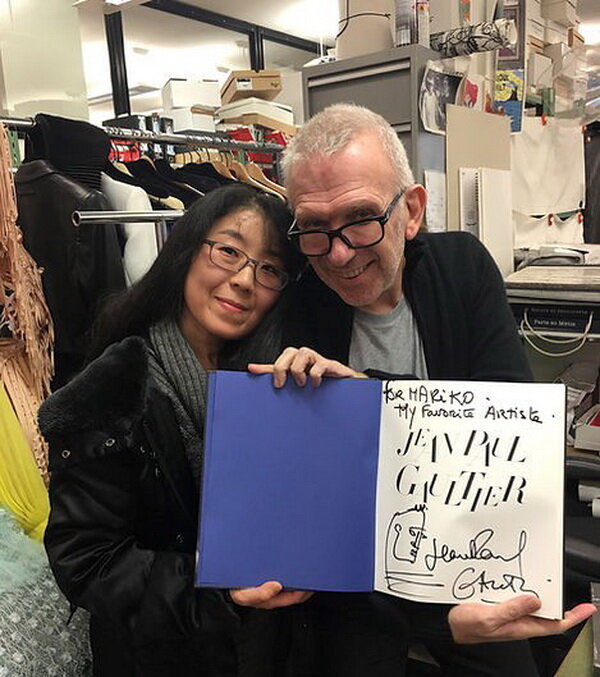 for MARiKO.
My FavoRite ARtiste.
JEAN PAUL
GAULTIER
Jean Paul
Gaultier